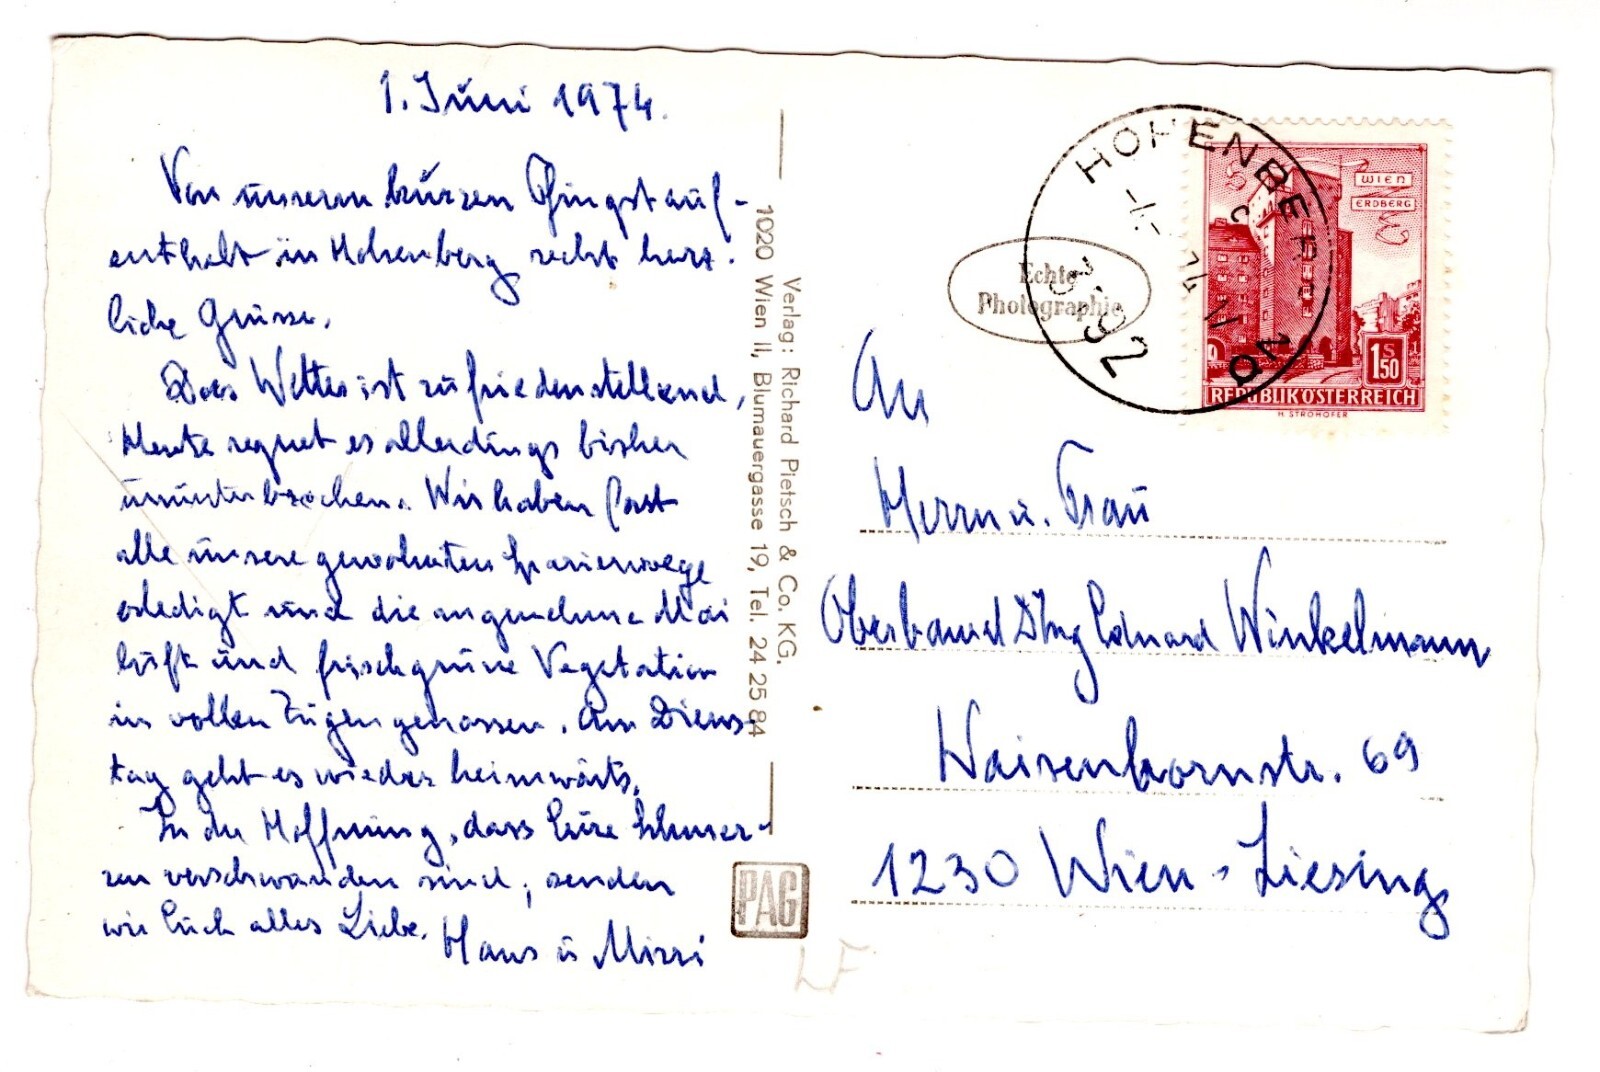 1. Juni 1974.
Von unserem kurzen Pfingstauf-
enthalt in Hohenberg recht herz-
liche Grüsse.
Das Wetter ist zufriedenstellend,
Heute regnet es allerdings bisher
ununterbrochen. Wir haben fast
alle unsere gewohnten Spazierwege
erledigt und die angenehme Mai
luft und frischgrüne Vegetation
in vollen Zügen genossen. Am Diens-
tag geht es wieder heimwärts.
In der Hoffnung, dass Eure Schmer-
zen verschwunden sind, senden
wir Euch alles Liebe.
Hans u Mizzi
Verlag: Richard Pietsch & Co. KG.
1020 Wien II, Blumauergasse 19, Tel. 24 25 84
PAG
LF
Echte
Photographie
HOHENBERG NÖ
3192
WIEN
ERDBERG
S
1 50
REPUBLIK ÖSTERREICH
H. STROHOFER
An
Herrn u. Frau
Oberbaurat DIng Eduard Winkelmann
Waisenhornstr. 69
1230 Wien - Liesing